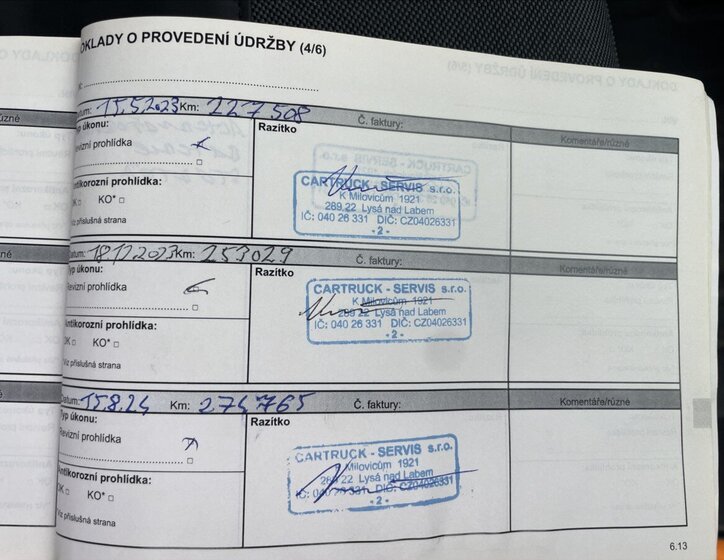 OKLADY O PROVEDENÍ ÚDRŽBY (4/6)
Datum: 15.5.2023 Km: 227508 Č. faktury: Komentáře/různé
Typ úkonu:
Revizní prohlídka
Antikorozní prohlídka:
OK KO*
Viz příslušná strana
Razítko
CARTRUCK - SERVIS s.r.o.
K Milovicům 1921
289 22 Lysá nad Labem
IČ: 040 26 331 DIČ: CZ04026331
- 2 -
Datum: 18.12.2023 Km: 253029 Č. faktury: Komentáře/různé
Typ úkonu:
Revizní prohlídka
Antikorozní prohlídka:
OK KO*
Viz příslušná strana
Razítko
CARTRUCK - SERVIS s.r.o.
K Milovicům 1921
289 22 Lysá nad Labem
IČ: 040 26 331 DIČ: CZ04026331
- 2 -
Datum: 15.8.24 Km: 274765 Č. faktury: Komentáře/různé
Typ úkonu:
Revizní prohlídka
Antikorozní prohlídka:
OK KO*
Viz příslušná strana
Razítko
CARTRUCK - SERVIS s.r.o.
Milovicům 1921
289 22 Lysá nad Labem
IČ: 040 26 331 DIČ: CZ04026331
- 2 -
6.13